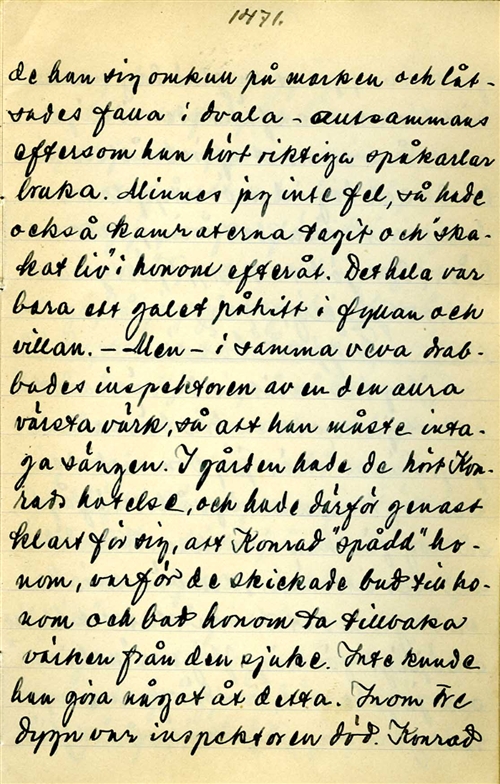 1471.
de han sig omkull på marken och låt-
sades falla i dvala - allsammans
eftersom han hört riktiga spåkarlar
bruka. Minnes jag inte fel, så hade
också kamraterna tagit och "ska-
kat liv" i honom efteråt. Det hela var
bara ett galet påhitt i fyllan och
villan. - Men - i samma veva drab-
bades inspektoren av en den allra
värsta värk, så att han måste inta-
ga sängen. I gården hade de hört Kon-
rads hotelse, och hade därför genast
klart för sig, att Konrad "spådd" ho-
nom, varför de skickade bud till ho-
nom och bad honom ta tillbaka
värken från den sjuke. Inte kunde
han göra något åt detta. Inom tre
dygn var inspektoren död. Konrad